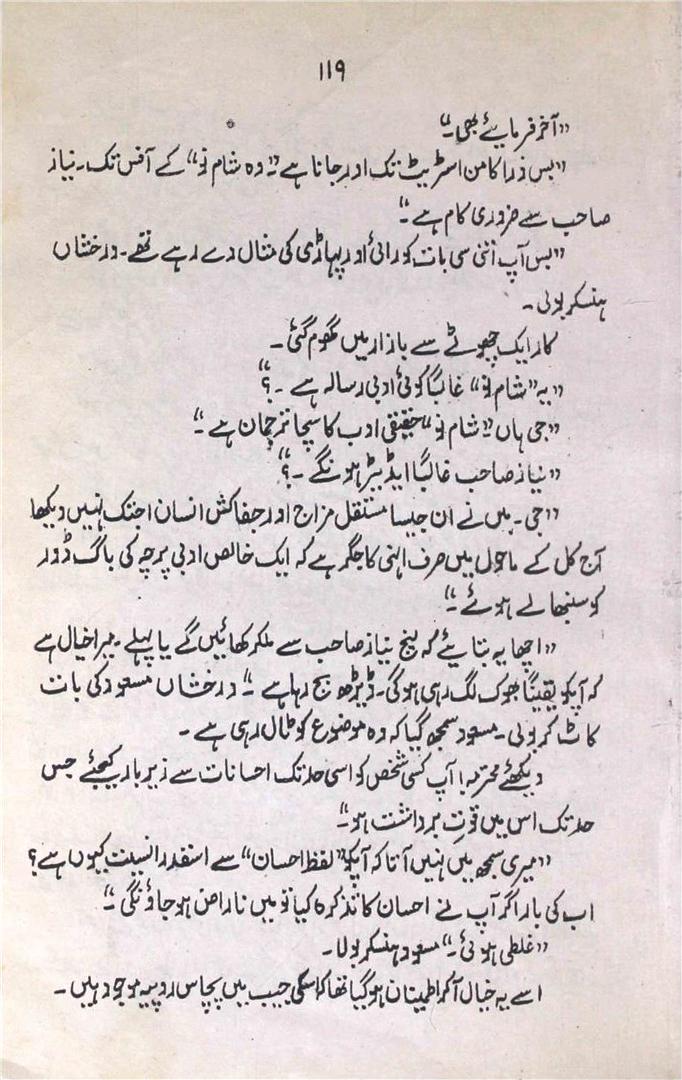 ۱۱۹
”آخر فرمایئے بھی۔“
”بس ذرا کامن اسٹریٹ تک اور جانا ہے ”وہ شام نو“ کے آفس تک۔ نیاز
صاحب سے ضروری کام ہے۔“
”بس آپ اتنی سی بات کو رائی اور پہاڑی کی مثال دے رہے تھے۔ درخشاں
ہنسکر بولی۔
کار ایک چھوٹے سے بازار میں گھوم گئی۔
”یہ ”شام نو“ غالباً کوئی ادبی رسالہ ہے۔؟“
”جی ہاں ”شام نو“ حقیقی ادب کا سچا ترجمان ہے۔“
”نیاز صاحب غالباً ایڈیٹر ہونگے۔؟“
”جی۔ میں نے ان جیسا مستقل مزاج اور جفاکش انسان اجتک نہیں دیکھا
آج کل کے ماحول میں صرف انہی کا جگر ہے کہ ایک خالص ادبی پرچہ کی باگ ڈور
کو سنبھالے ہوئے۔“
”اچھا یہ بتایئے کہ لنچ نیاز صاحب سے ملکر کھائیں گے یا پہلے۔ میرا خیال ہے
کہ آپکو یقیناً بھوک لگ رہی ہوگی۔ ڈیڑھ بج رہا ہے۔“ درخشاں مسعود کی بات
کاٹ کر بولی۔ مسعود سمجھ گیا کہ وہ موضوع کو ٹال رہی ہے۔
دیکھئے محترمہ! آپ کسی شخص کو اسی حد تک احسانات سے زیر بار کیجئے جس
حد تک اس میں قوتِ برداشت ہو۔“
”میری سمجھ میں نہیں آتا کہ آپکو ”لفظ احسان“ سے اسقدر انسیت کیوں ہے؟
اب کی بار اگر آپ نے احسان کا تذکرہ کیا تو میں ناراض ہو جاؤنگی۔“
”غلطی ہوئی۔“ مسعود ہنسکر بولا۔
اسے یہ خیال آکر اطمینان ہو گیا تھا کہ اسکی جیب میں پچاس روپیہ موجود ہیں۔